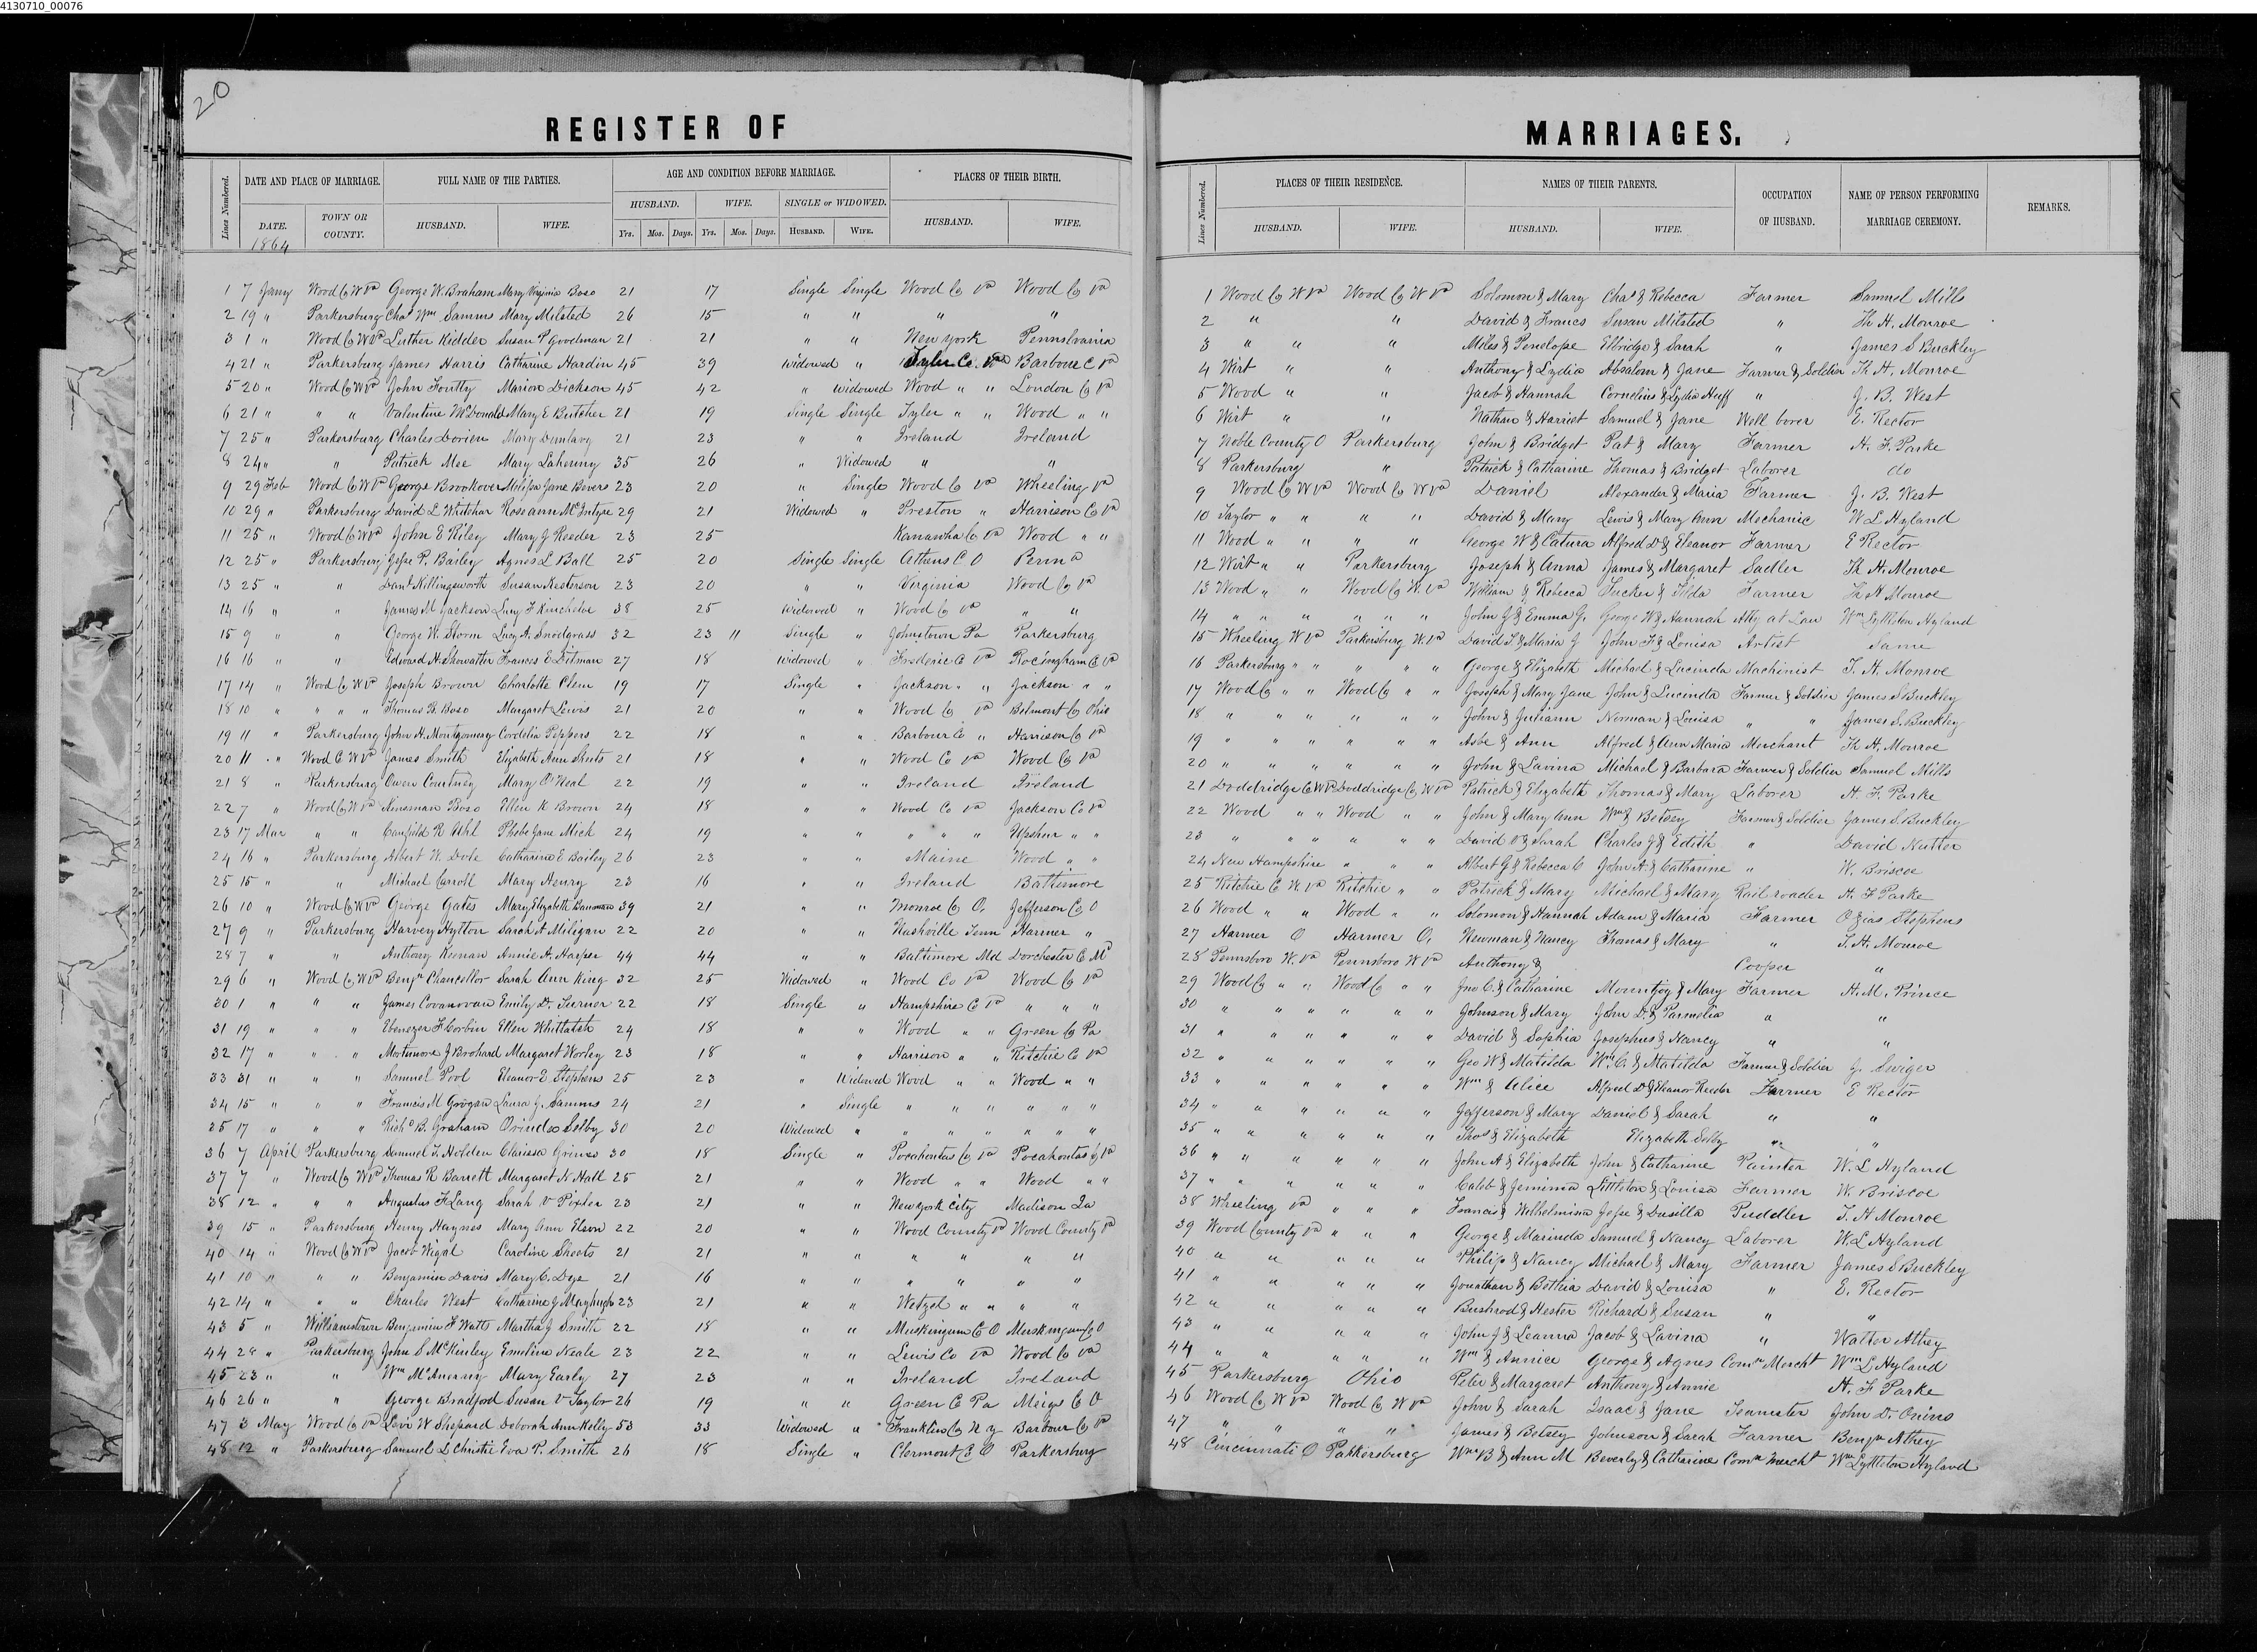 4130710_00076
20
REGISTER OF
MARRIAGES.
Lines Numbered. DATE AND PLACE OF MARRIAGE. FULL NAME OF THE PARTIES. AGE AND CONDITION BEFORE MARRIAGE. PLACES OF THEIR BIRTH.
HUSBAND. WIFE. SINGLE or WIDOWED.
DATE. TOWN OR COUNTY. HUSBAND. WIFE. Yrs. Mos. Days. Yrs. Mos. Days. HUSBAND. WIFE. HUSBAND. WIFE.
1864
1 7 Jany Wood Co W Va George W. Braham Mary Virginia Boso 21 17 Single Single Wood Co Va Wood Co Va
2 19 " Parkersburg Chas Wm Samms Mary Milsted 26 15 " " " "
3 1 " Wood Co W Va Luther Kidder Susan P Goodman 21 21 " " New York Pennslvania
4 21 " Parkersburg James Harris Catharine Hardin 45 39 Widowed " Tyler Co. Va Barbour C Va
5 20 " Wood Co W Va John Foutty Marion Dickson 45 42 " Widowed Wood " " Loudon Co Va
6 21 " " " Valentine McDonald Mary E Butcher 21 19 Single Single Tyler " " Wood " "
7 25 " Parkersburg Charles Dorien Mary 21 23 " " Ireland Ireland
8 24 " " Patrick Mee Mary 35 26 " Widowed " "
9 29 Feb Wood Co W Va George Brookover Melissa Jane Bevers 23 20 " Single Wood Co Va Wheeling Va
10 29 " Parkersburg David L Whitehar Rossann McIntyre 29 21 Widowed " Preston " Harrison Co Va
11 25 " Wood Co W Va John E Riley Mary J Reeder 23 25 Kanawha Co Va Wood " "
12 25 " Parkersburg Jesse P. Bailey Agnes L Ball 25 20 Single Single Athens C O Penna
13 25 " " Danl Killingsworth Susan Kesterson 23 20 " " Virginia Wood Co Va
14 16 " " James M Jackson Lucy F Kincheloe 38 25 Widowed " Wood Co Va " "
15 9 " " George W. Storm Lucy A. Snodgrass 32 23 11 Single " Johnstown Pa Parkersburg
16 16 " " Edward H. Showalter Frances E Ditman 27 18 Widowed " Frederic C Va Rocingham C Va
17 14 " Wood Co W Va Joseph Brown Charlotte Clem 19 17 Single " Jackson " " Jackson " "
18 10 " " " " Thomas B. Boso Margaret Lewis 21 20 " " Wood Co Va Belmont Co Ohio
19 11 " Parkersburg John H. Montgomery Cordelia Peppers 22 18 " " Barbour Co " Harrison Co Va
20 11 " Wood C W Va James Smith Elizabeth Ann Sheets 21 18 " " Wood Co Va Wood Co Va
21 8 " Parkersburg Owen Courtney Mary O'Neal 22 19 " " Ireland Ireland
22 7 " Wood Co W Va Kinsman Boso Ellen K Brown 24 18 " " Wood Co Va Jackson Co Va
23 17 Mar " " Canfield R Uhl Phebe Jane Mick 24 19 " " " " " Upshur " "
24 16 " Parkersburg Albert W. Dole Catharine E Bailey 26 23 " " Maine Wood " "
25 15 " " Michael Carroll Mary Henry 23 16 " " Ireland Baltimore
26 10 " Wood Co W Va George Gates Mary Elizabeth Bauman 39 21 " " Monroe Co O. Jefferson Co O
27 9 " Parkersburg Harvey Hylton Sarah A Miligan 22 20 " " Nashville Tenn Harmer "
28 7 " " Anthony Keenan Annie A. Harper 44 44 " " Baltimore Md Dorchester C Md
29 6 " Wood Co W Va Benjn Chancellor Sarah Ann King 32 25 Widowed " Wood Co Va Wood Co Va
30 1 " " " James Covanovan Emily D. Turner 22 18 Single " Hampshire C Va " " "
31 19 " " " Ebenezer F Corbin Ellen Whitlatch 24 18 " " Wood " " Green Co Pa
32 17 " " " Mortimore J Brohard Margaret Worley 23 18 " " Harrison " " Ritchie Co Va
33 31 " " " Samuel Pool Eleanor E Stephens 25 23 " Widowed Wood " " Wood " "
34 15 " " " Francis M Grogan Laura J. Samms 24 21 " Single " " " " " "
35 17 " " " Richd B. Graham Orinda Selby 30 20 Widowed " " " " " " "
36 7 April Parkersburg Samuel T. Holden Clarissa Grimes 30 18 Single " Pocahontas Co Va Pocahontas Co Va
37 7 " Wood Co W Va Thomas R Barrett Margaret K Hall 25 21 " " Wood " " Wood " "
38 12 " " " Augustus F Lang Sarah V Pixler 23 21 " " New york City Madison Ia
39 15 " Parkersburg Henry Haynes Mary Ann Elson 22 20 " " Wood County Va Wood County Va
40 14 " Wood Co W Va Jacob Wigal Caroline Sheets 21 21 " " " " " "
41 10 " " " Benjamin Davis Mary C. Dye 21 16 " " " " " "
42 14 " " " Charles West Catharine J Mayhugh 23 21 " " Wetzel " " " "
43 5 " Williamstown Benjamin F Watts Martha J Smith 22 18 " " Muskingum C O Muskingum Co O
44 28 " Parkersburg John S McKinley Emeline Neale 23 22 " " Lewis Co Va Wood Co Va
45 23 " " Wm Mary Early 27 23 " " Ireland Ireland
46 26 " " George Bradford Susan V Taylor 26 19 " " Green C Pa Meigs C O
47 3 May Wood Co Va Levi W Shepard Deborah Ann Kelly 53 33 Widowed " Franklin Co N Y Barbour Co Va
48 12 " Parkersburg Samuel L Christie Eva P. Smith 26 18 Single " Clermont C O Parkersburg
Lines Numbered. PLACES OF THEIR RESIDENCE. NAMES OF THEIR PARENTS. OCCUPATION OF HUSBAND. NAME OF PERSON PERFORMING MARRIAGE CEREMONY. REMARKS.
HUSBAND. WIFE. HUSBAND. WIFE.
1 Wood Co W Va Wood Co W Va Solomon & Mary Chas & Rebecca Farmer Samuel Mills
2 " " David & Francs Susan Milsted " Th H. Monroe
3 " " " Miles & Penelope Elbridge & Sarah " James S Buckley
4 Wirt " " Anthony & Lydia Absalom & Jane Farmer & Soldier Th H. Monroe
5 Wood " " Jacob & Hannah Cornelius & Lydia Huff " J. B. West
6 Wirt " " Nathan & Harriet Samuel & Jane Well borer E. Rector
7 Noble County O Parkersburg John & Bridget Pat & Mary Farmer H. F. Parke
8 Parkersburg " Patrick & Catharine Thomas & Bridget Laborer do
9 Wood Co W Va Wood Co W Va Daniel Alexander & Maria Farmer J. B. West
10 Taylor " " " " David & Mary Lewis & Mary Ann Mechanic W L Hyland
11 Wood " " " " George W & Catura Alfred D & Eleanor Farmer E Rector
12 Wirt " " Parkersburg Joseph & Anna James & Margaret Sadler Th H. Monroe
13 Wood " " Wood Co W. Va William & Rebecca Tucker & Tilda Farmer Th H Monroe
14 " " " " " " John J & Emma G. George W & Hannah Atty at Law Wm Lyttleton Hyland
15 Wheeling W Va Parkersburg W. Va David T & Maria J John F & Louisa Artist Same
16 Parkersburg " " " " " George & Elizabeth Michael & Lucinda Machinist T. H. Monroe
17 Wood Co " " Wood Co " " Joseph & Mary Jane John & Lucinda Farmer & Soldier James S Buckley
18 " " " " " " John & Juliann Norman & Louisa " " James S. Buckley
19 " " " " " " Asbe & Ann Alfred & Ann Maria Merchant Th H. Monroe
20 " " " " " " John & Lavina Michael & Barbara Farmer & Soldier Samuel Mills
21 Doddridge C W Va Doddridge C W Va Patrick & Elizabeth Thomas & Mary Laborer H. F. Parke
22 Wood " " Wood " " John & Mary Ann Wm & Betsey Farmer & Soldier James S. Buckley
23 " " " " " " David V & Sarah Charles J & Edith " David Nutter
24 New Hampshire " " " Albert G & Rebecca C John A. & Catharine " W. Briscoe
25 Ritchie C W. Va Ritchie " " Patrick & Mary Michael & Mary Rail roader H. F Parke
26 Wood " " Wood " " Solomon & Hannah Adam & Maria Farmer Ozias Stephens
27 Harmer O Harmer O. Newman & Nancy Thomas & Mary " T. H. Monroe
28 Pennsboro W. Va Pennsboro W Va Anthony & Cooper "
29 Wood Co " " Wood Co " " Jno C. & Catharine Mountjoy & Mary Farmer H. M. Prince
30 " " " " " " Johnson & Mary John D. & Parmelia " "
31 " " " " " " David & Sophia Josephus & Nancy " "
32 " " " " " " Geo W & Matilda Wm C. & Matilda Farmer & Soldier J. Swiger
33 " " " " " " Wm & Alice Alfred D & Eleanor Reeder Farmer E Rector
34 " " " " " " Jefferson & Mary Daniel & Sarah " "
35 " " " " " " Thos & Elizabeth Elizabeth Selby " "
36 " " " " " " John A & Elizabeth John & Catharine Painter W. L Hyland
37 " " " " " " Caleb & Jemima Littleton & Louisa Farmer W. Briscoe
38 Wheeling Va " " " Francis & Wilhelmina Jesse & Dusilla Puddler T. H Monroe
39 Wood County Va " " " George & Marinda Samuel & Nancy Laborer W. L Hyland
40 " " " " " Philip & Nancy Michael & Mary Farmer James S Buckley
41 " " " " " Jonathan & Bethia David & Louisa " E. Rector
42 " " " " " Bushrod & Hester Richard & Susan " "
43 " " " " " John J & Leanna Jacob & Lavina " Walter Athey
44 " " " " " Wm & Annice George & Agnes Comn Mercht Wm L Hyland
45 Parkersburg Ohio Peter & Margaret Anthony & Annie H. F Parke
46 Wood Co W Va Wood Co W Va John & Sarah Isaac & Jane Teamster John D.
47 " " " " James & Betsey Johnson & Sarah Farmer Benjn Athey
48 Cincinnati O Parkersburg Wm B & Ann M Beverly & Catharine Comn mercht Wm Lyttleton Hyland